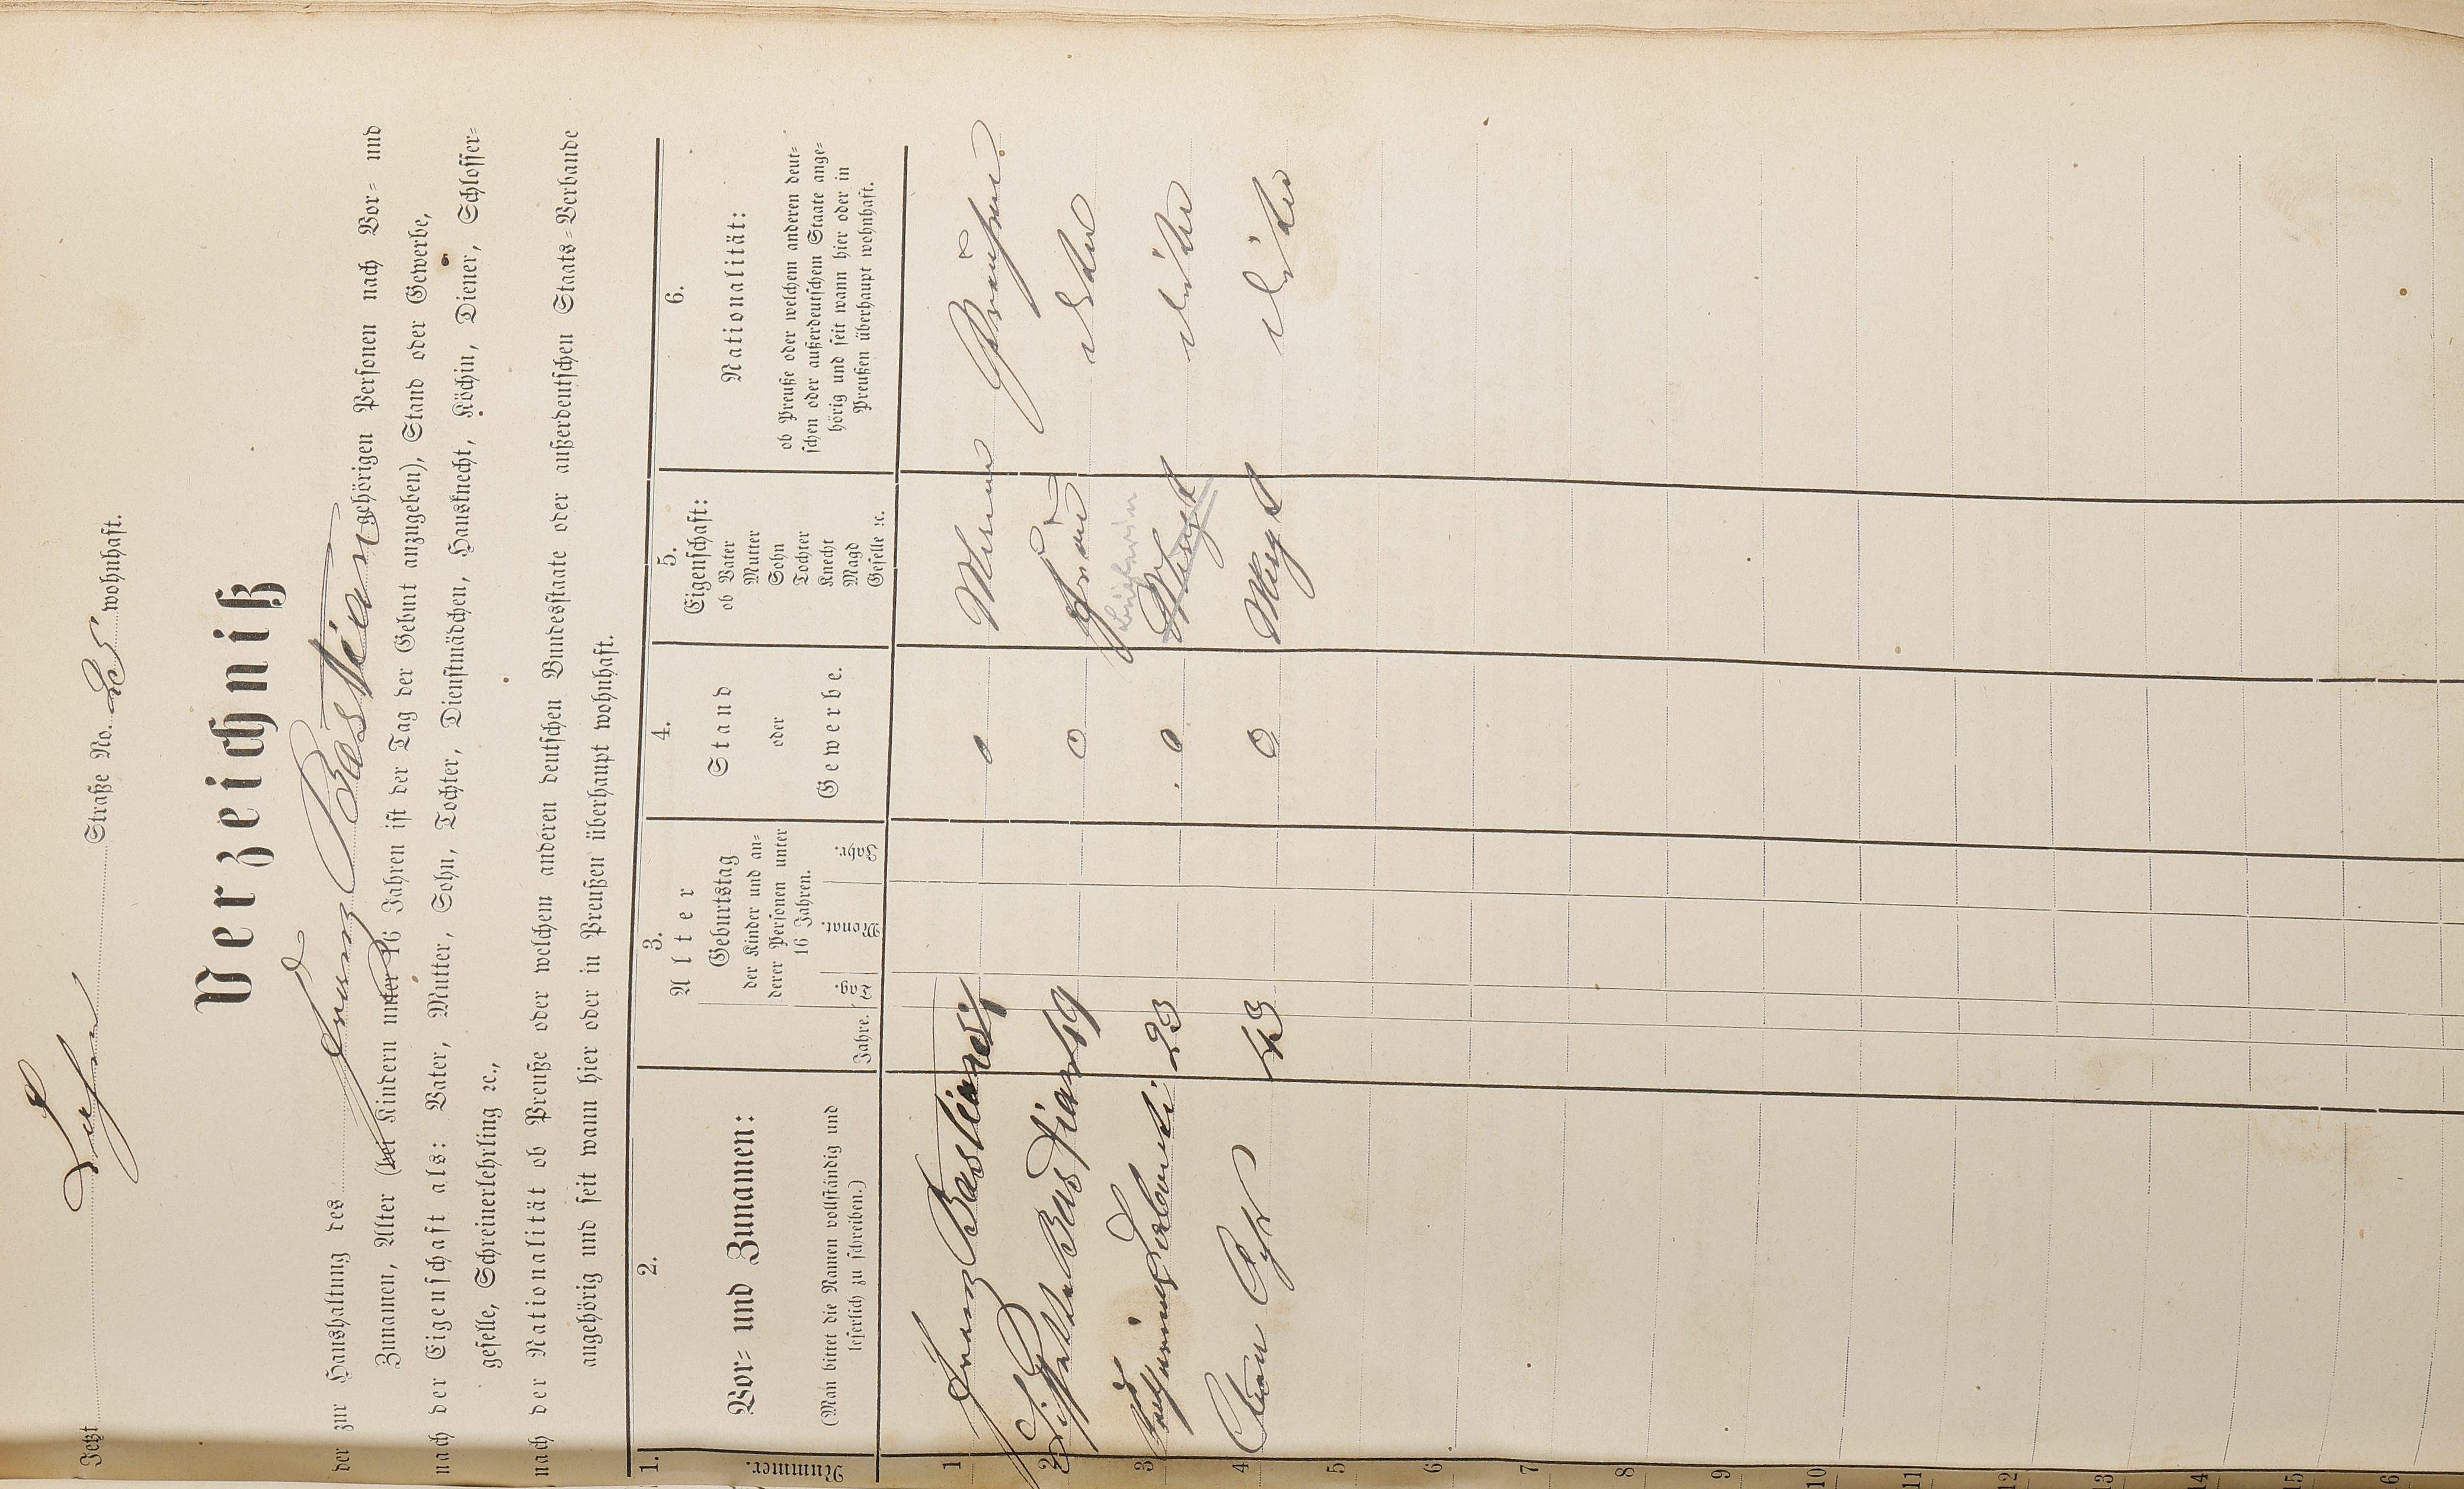 Jetzt Lehr Straße No. 28 wohnhaft.
Verzeichniß
der zur Haushaltung des Franz Bastian gehörigen Personen nach Vor- und
Zunamen, Alter (bei Kindern unter 16 Jahren ist der Tag der Geburt anzugeben), Stand oder Gewerbe,
nach der Eigenschaft als: Vater, Mutter, Sohn, Tochter, Dienstmädchen, Hausknecht, Köchin, Diener, Schlosser-
geselle, Schreinerlehrling ꝛc.,
nach der Nationalität ob Preuße oder welchem anderen deutschen Bundesstaate oder außerdeutschen Staats-Verbande
angehörig und seit wann hier oder in Preußen überhaupt wohnhaft.
1. 2. 3. 4. 5. 6.
Nummer.
Vor- und Zunamen:
(Man bittet die Namen vollständig und
leserlich zu schreiben.)
Alter
Jahre.
Geburtstag
der Kinder und an-
derer Personen unter
16 Jahren.
Tag. Monat. Jahr.
Stand
oder
Gewerbe.
Eigenschaft:
ob Vater
Mutter
Sohn
Tochter
Knecht
Magd
Geselle ꝛc.
Nationalität:
ob Preuße oder welchem anderen deut-
schen oder außerdeutschem Staate ange-
hörig und seit wann hier oder in
Preußen überhaupt wohnhaft.
1 Franz Bastian 0 Mann Preußen
2 Bastian 49 0 Frau
3 23 0 Magd dito
4 0 Magd dito
5
6
7
8
9
10
11
12
13
14
15
16